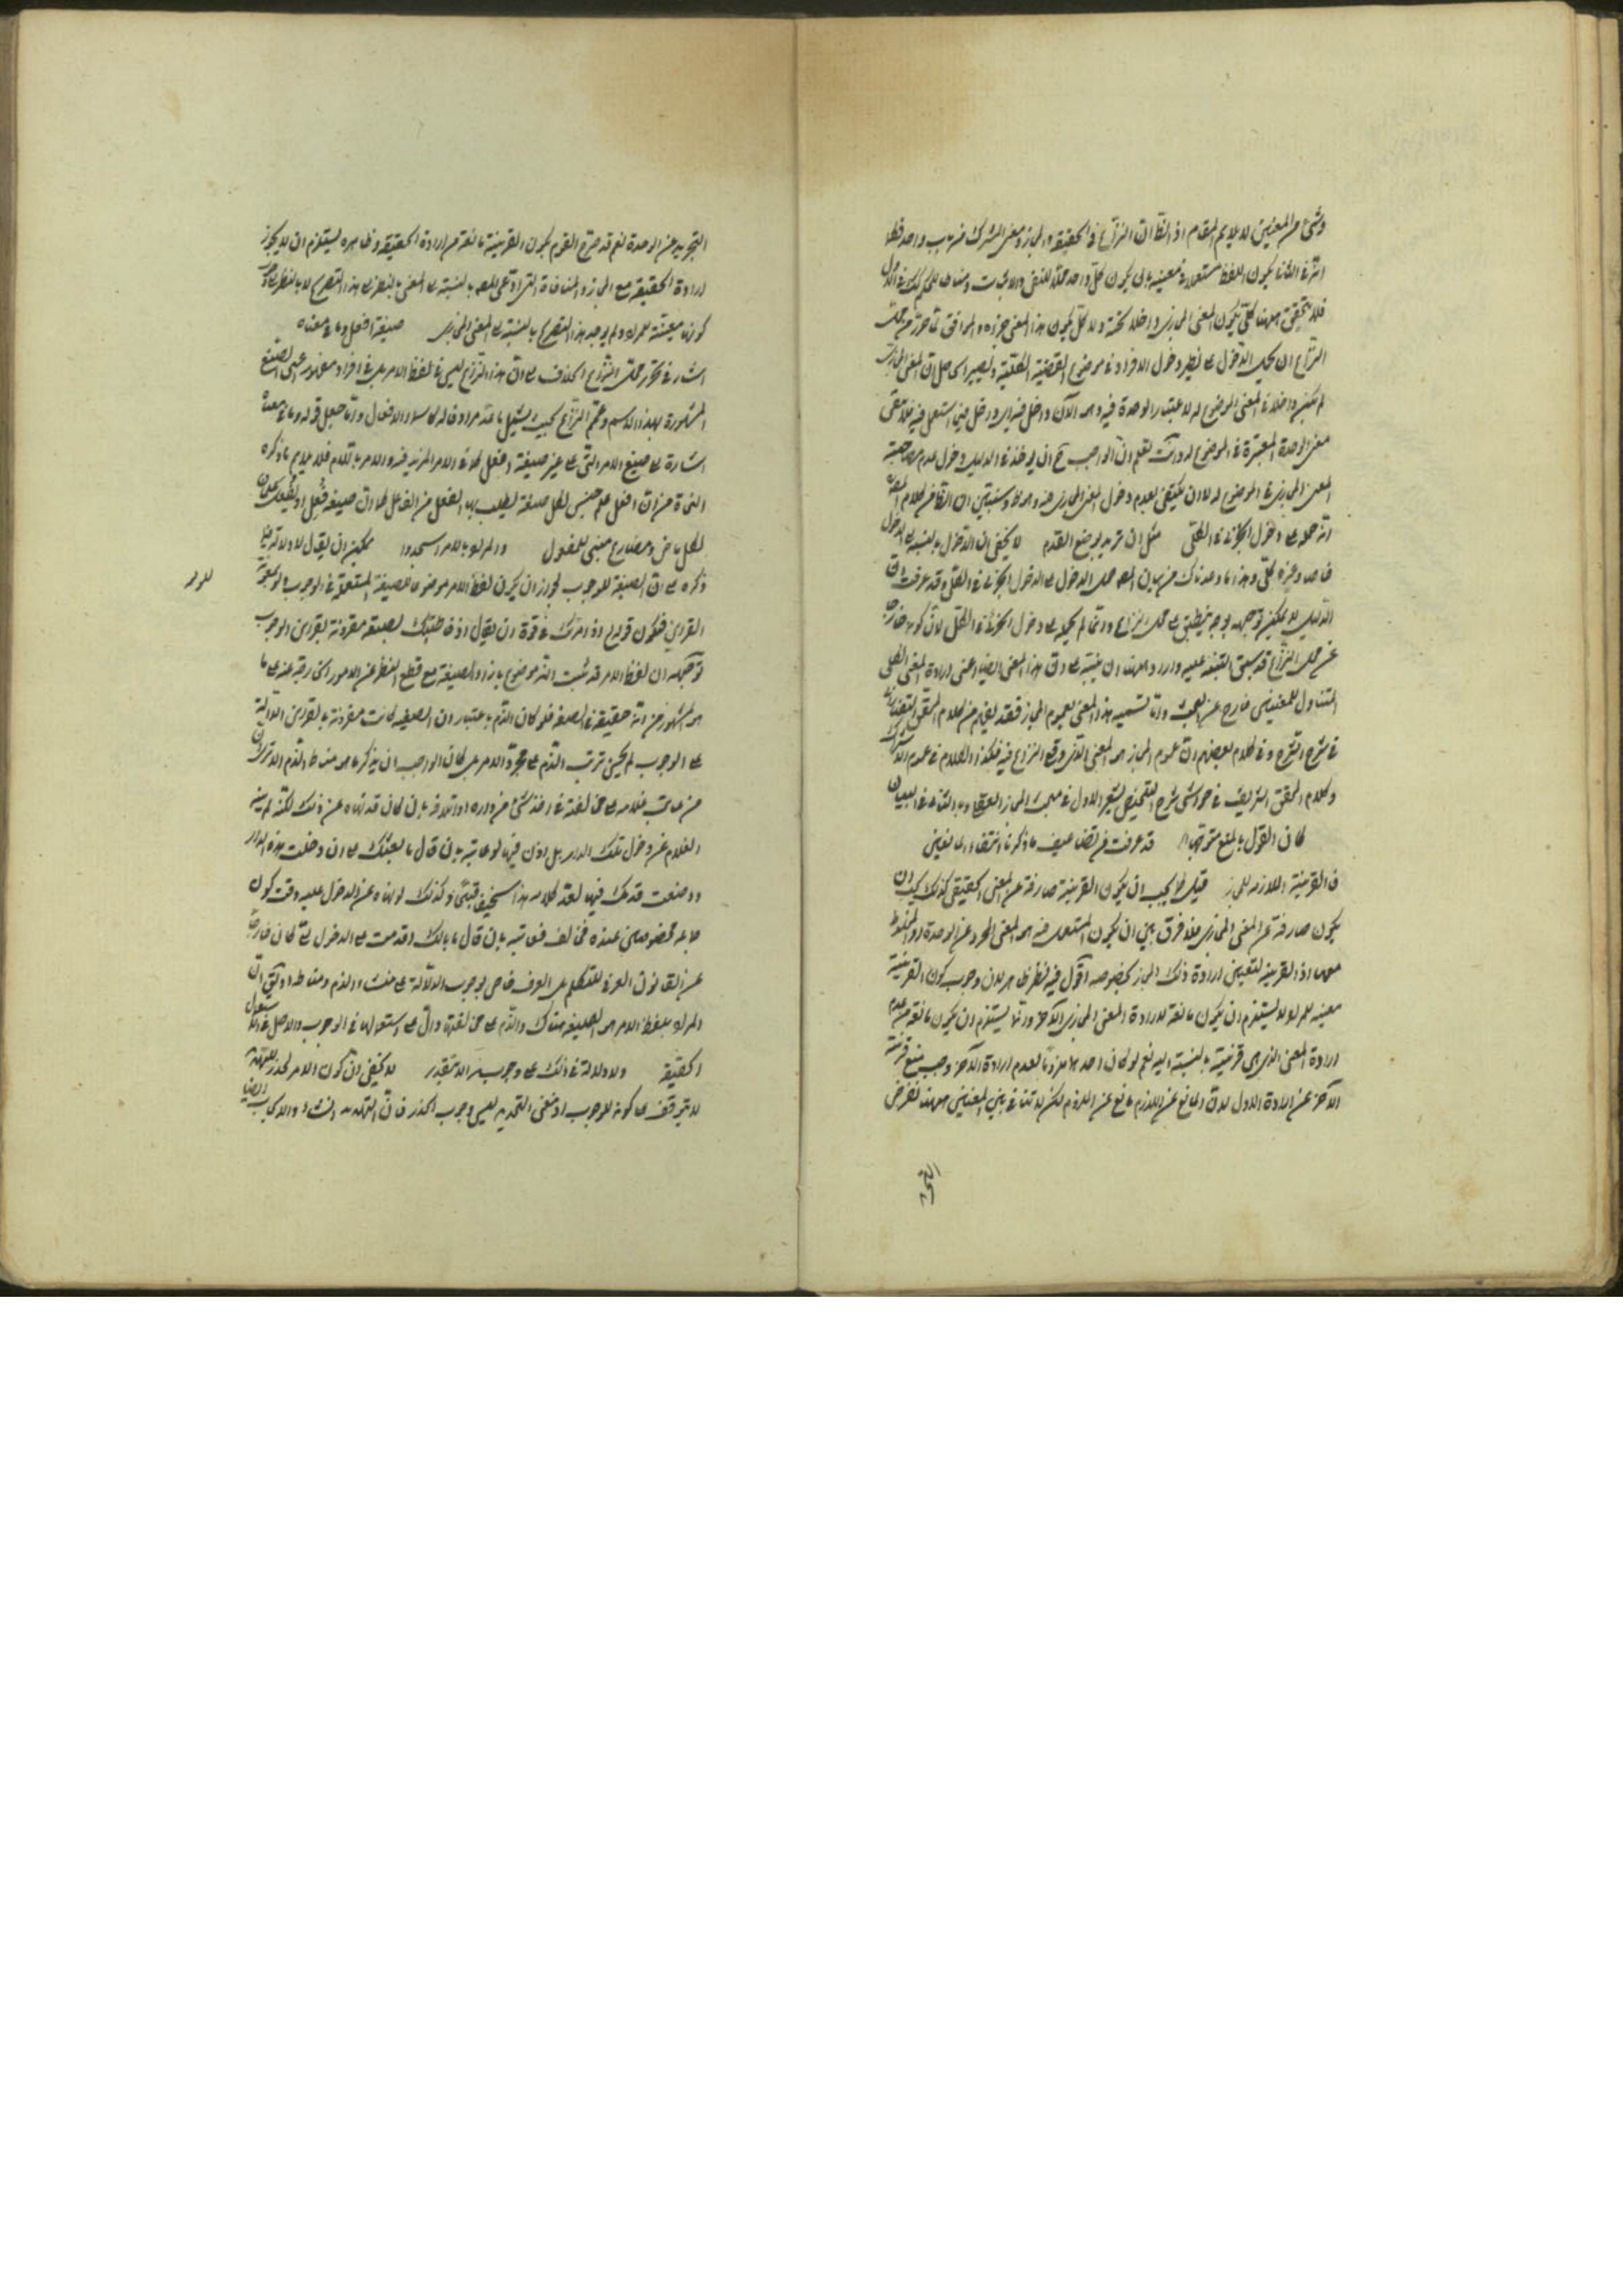 وشئ من المعنيين لا يلايم المقام اذ الظ ان النزاع في الحقيقة والمجاز ومعنى المشترك من باب واحد فظ
ان يكون اللفظ مستعملا في معنييه بان يكون كل واحد محلا للنفى والاثبات ومناطا للحكم
فلا يتحقق ههنا كلى يكون المعنى المجازى داخلا تحته ولا كل يكون هذا المعنى جزءه والموافق
النزاع ان يحمل الدخول على نظير دخول الافراد في موضوع القضية الكلية ويصير الحاصل ان المعنى المجازى
لم يكن داخلا في المعنى الموضوع له لاعتبار الوحدة فيه وهو الآن داخل فيه اى داخل فيما استعمل فيه فلا يبقى
معنى الوحدة المعتبرة في الموضوع له وانت تعلم ان الواجب ح ان يوخذ في الدليل دخول
المعنى المجازى في الموضوع له لا ان يكتفى بعدم دخول المعنى المجازى فيه
انه حمله على دخول الجزء في الكل مثل ان تريد بوضع القدم لا يخفى ان الدخول بالنسبة الى الدخول
خاص وغيره كلى وهذا ما وعدناك من بيان المص حمل الدخول على الدخول الجزء في الكل وقد عرفت ان
الدليل لا يمكن توجيهه بوجه ينطبق على محل النزاع وانما لم يحمله على دخول الجزء في الكل لان كونه خارجا
عن محل النزاع قد سبق التنبيه عليه واراد ههنا ان ينبه على ان هذا المعنى ايضا اعنى ارادة المعنى الكلى
المتناول للمعنيين خارج عن البحث واما تسميه هذا المعنى بعموم المجاز فقد يفهم من كلام المحقق التفتازانى
في شرح الشرح وفي كلام بعضهم ان عموم المجاز هو المعنى الذى وقع النزاع فيه فهكذا الكلام في عموم الاشتراك
وكلام المحقق الشريف في حواشى شرح التلخيص يشعر الاول في مبحث المجاز العقلى وبالثانى في البيان
كان القول بالمنع متوجها قد عرفت من تضاعيف ما ذكرنا انتفاء المانعين
فان القرينة اللازمة للمجاز قيل كما يجب ان يكون القرينة صارفة عن المعنى الحقيقى كذلك يجب ان
يكون صارفة عن المعنى المجازى فلا فرق بين ان يكون المستعمل فيه هو المعنى المجرد عن الوحدة او المخلوط
معها اذ القرينة لتعيين ارادة ذلك المجاز بخصوصه اقول فيه نظر ظاهر لان وجوب كون القرينة
معينه للمراد لا يستلزم ان يكون مانعة لارادة المعنى المجازى الآخر وانما يستلزم ان يكون مانعة من عدم
ارادة المعنى الذى هى قرينة بالنسبة اليه نعم لو كان احدهما ملزوما لعدم ارادة الآخر وجب منع قرينة
الآخر عن ارادة الاول لان المانع عن اللازم مانع عن الملزوم لكن لا تنافى بين المعنيين ههنا بفرض
التجريد عن الوحدة نعم قد صرح القوم بكون القرينة مانعة من ارادة الحقيقة وظاهره يستلزم ان لا يجوز
ارادة الحقيقة مع المجاز والمنافاة التى ادعى المص بالنسبة الى المعنى بالنظر الى هذا التصريح لا بالنظر الى
كونها معينة للمراد ولم يوجد هذا التصريح بالنسبة الى المعنى المجازى صيغة افعل وما في معناه
اشار في تحرير محل النزاع الخلاف الى ان هذا النزاع ليس في لفظ الامر بل في افراد مفهومه اعنى الصيغ
المشهورة بهذا الاسم وعمم النزاع بحيث يشمل ما عد مرادفا له كاسماء الافعال وربما جعل قوله وما في معناه
اشارة الى صيغ الامر التى على غير صيغة افعل كما في الامر المزيد فيه والامر باللام فلا يلايم ما ذكره
النحاة من ان افعل علم جنس لكل صيغة يطلب بها الفعل من الفاعل كما ان صيغه فُعِل او يُفعَل علمان
لكل ماض ومضارع مبنى للمفعول والمراد بالامر اسجدوا يمكن ان يقال لا دلالة فيما
ذكره على ان الصيغة للوجوب لجواز ان يكون لفظ الامر موضوعا للصيغة المستعملة في الوجوب ولو بمعونة
القراين فيكون قوله اذ امرتك في قوة ان يقول اذ خاطبتك بصيغة مقرونة بقراين الوجوب
توجيهه ان لفظ الامر قد ثبت انه موضوع بازاء الصيغة مع قطع النظر عن الامور الخارجة عنه على ما
هو المشهور من انه حقيقة في الصيغة فلو كان الذم باعتبار ان الصيغة كانت مقرونة بالقراين الدالة
على الوجوب لم يحسن ترتب الذم على مجرد الامر بل كان الواجب ان يذكر ما هو مناط الذم
من عاتب غلامه على مخالفته في اخذ شئ من داره او اتلافه بان كان قد نهاه عن ذلك لكنه لم ينه
الغلام عن دخول تلك الدار بل اذن فيها لو عاتبه بان قال ما بعثك على ان دخلت هذه الدار
ووضعت قدمك فيها لعد كلامه هذا سخيفا قبيحا وكذلك لو نهاه عن الدخول عليه وقت كون
جماعة مخصوصين عنده فخالف فعاتبه بان قال ما بالك اقدمت على الدخول على كان خارجا
عن القانون العرف للتكلم بل العرف قاض بوجوب الدلالة على منشاء الذم ومناطه
المراد بلفظ الامر هو الصيغة هناك والذم على مخالفتها دال على استعمالها في الوجوب والاصل في الاستعمال
الحقيقة ولا دلالة في ذلك على وجوب لا يخفى ان كون الامر للتهديد
لا يتوقف على كونه للوجوب اذ معنى التحذير ليس وجوب الحذر فان التهديد انشاء والايجاب ايضا
التجر